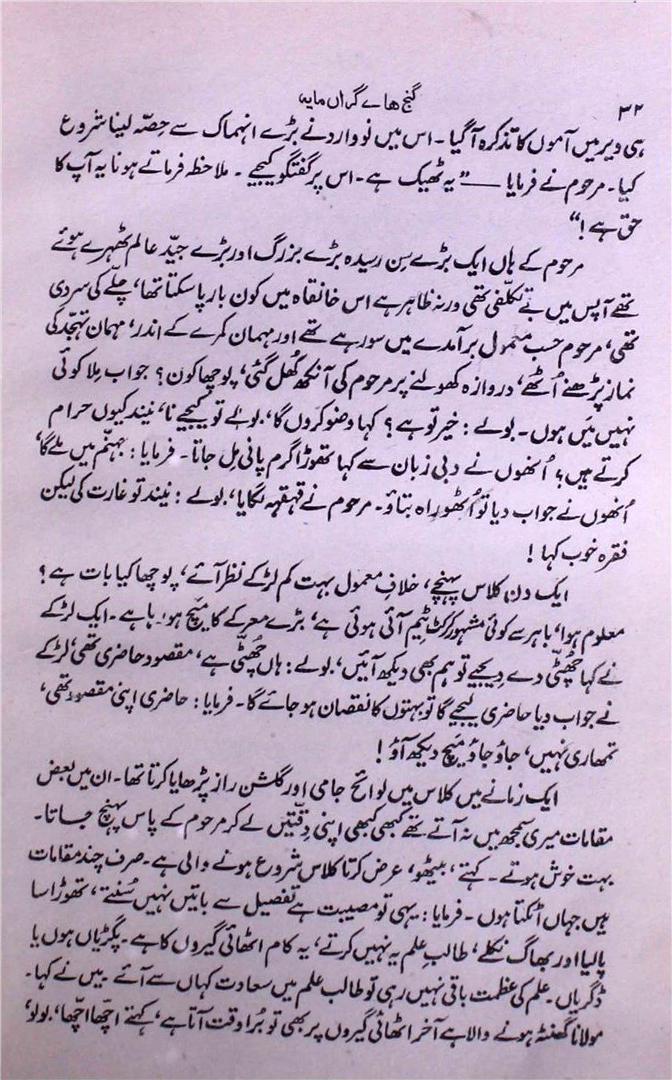 ۳۲
گنج ھاے گراں مایہ
ہی دیر میں آموں کا تذکرہ آگیا ۔ اس میں نو وارد نے بڑے انہماک سے حِصّہ لینا شروع
کیا۔ مرحوم نے فرمایا —— ” یہ ٹھیک ہے ۔ اس پر گفتگو کیجیے ۔ ملاحظہ فرماتے ہو نا یہ آپ کا
حق ہے !“
مرحوم کے ہاں ایک بڑے سِن رسیدہ بڑے بزرگ اور بڑے جیّد عالم ٹھہرے ہوئے
تھے آپس میں بے تکلّفی تھی ورنہ ظاہر ہے اس خانقاہ میں کون بار پا سکتا تھا، چلّے کی سردی
تھی، مرحوم حسب معمول برآمدے میں سو رہے تھے اور مہمان کمرے کے اندر، مہمان تہجّد کی
نماز پڑھنے اُٹھے، دروازہ کھولنے پر مرحوم کی آنکھ کُھل گئی، پوچھا کون ؟ جواب مِلا کوئی
نہیں مَیں ہوں ۔ بولے : خیر تو ہے ؟ کہا وضو کروں گا، بولے تو کیجیے نا، نیند کیوں حرام
کرتے ہیں؟ اُنھوں نے دبی زبان سے کہا تھوڑا گرم پانی مِل جاتا ۔ فرمایا : جہنّم میں ملے گا،
اُنھوں نے جواب دیا تو اُٹھو راہ بتاؤ ۔ مرحوم نے قہقہہ لگایا، بولے : نیند تو غارت کی لیکن
فقرہ خوب کہا !
ایک دن کلاس پہنچے، خلافِ معمول بہت کم لڑکے نظر آئے، پوچھا کیا بات ہے ؟
معلوم ہوا، باہر سے کوئی مشہور کرکٹ ٹیم آئی ہوئی ہے، بڑے معرکے کا میچ ہو رہا ہے ۔ ایک لڑکے
نے کہا چُھٹّی دے دیجیے تو ہم بھی دیکھ آئیں، بولے : ہاں چُھٹّی ہے، مقصود حاضری تھی، لڑکے
نے جواب دیا حاضری لیجیے گا تو بہتوں کا نقصان ہو جائے گا ۔ فرمایا : حاضری اپنی مقصود تھی،
تمھاری نہیں، جاؤ جاؤ میچ دیکھ آؤ !
ایک زمانے میں کلاس میں لوائح جامی اور گلشن راز پڑھایا کرتا تھا ۔ ان میں بعض
مقامات میری سمجھ میں نہ آتے تھے کبھی کبھی اپنی دقّتیں لے کر مرحوم کے پاس پہنچ جاتا ۔
بہت خوش ہوتے ۔ کہتے ، بیٹھو ، عرض کرتا کلاس شروع ہونے والی ہے ۔ صرف چند مقامات
ہیں جہاں اٹکتا ہوں ۔ فرمایا : یہی تو مصیبت ہے تفصیل سے باتیں نہیں سُنتے ، تھوڑا سا
پالیا اور بھاگ نکلے، طالب علم یہ نہیں کرتے، یہ کام اٹھائی گیروں کا ہے ۔ پگڑیاں ہوں یا
ڈگریاں ۔ علم کی عظمت باقی نہیں رہی تو طالب علم میں سعادت کہاں سے آئے ۔ میں نے کہا ۔
مولانا گھنٹہ ہونے والا ہے آخر اٹھائی گیروں پر بھی تو بُرا وقت آتا ہے، کہتے اچھا اچھا، بولو،